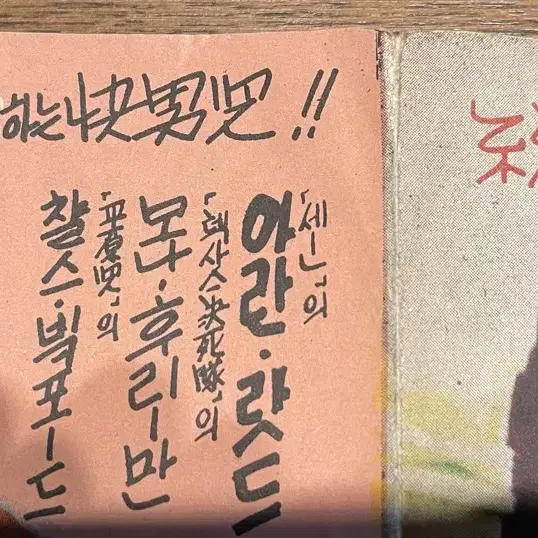 하는 快男児!!
「세-ㄴ」의
아란·랏드
「텍사스決死隊」의
몬나·후리-만
「平原児」의
찰스·빅포-드